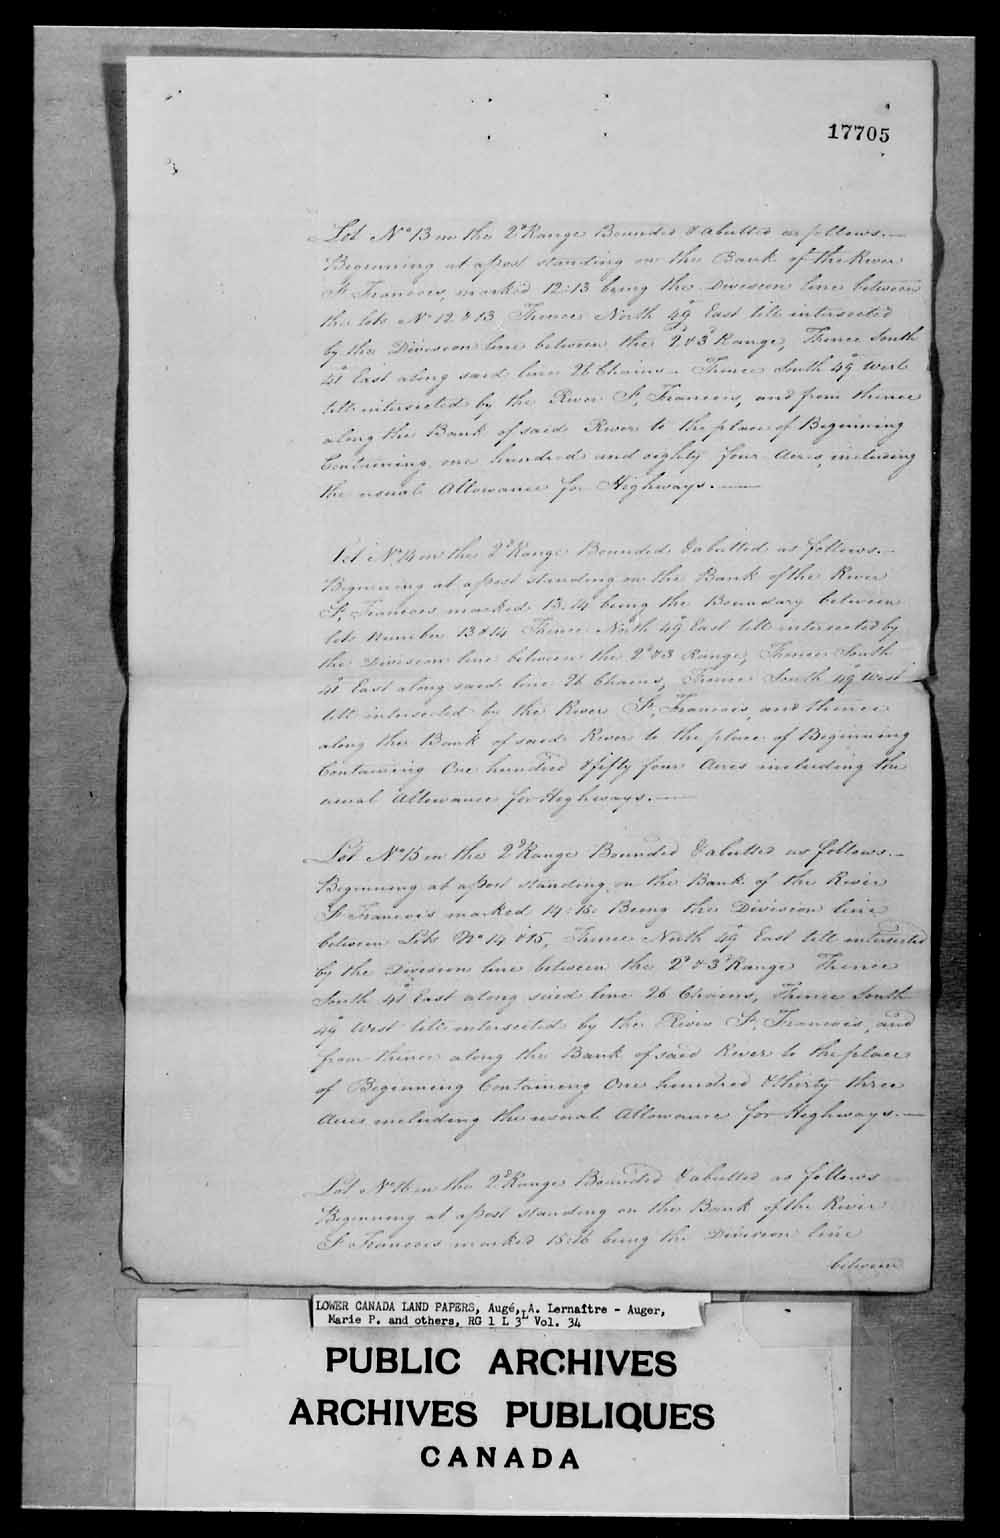 17705
Lot No 13 in the 2d Range Bounded & abutted as follows.—
Beginning at a post standing on the Bank of the River
St Francois, marked 12:13 being the Division line between
the lots No 12 & 13 Thence North 49° East till intersected
by the Division line between the 2d & 3d Range, Thence South
41° East along said line 26 Chains — Thence South 49° West
till intersected by the River St. Francois, and from thence
along the Bank of said River to the place of Beginning
Containing one hundred and eighty four Acres, including
the usual Allowance for Highways.—
Lot No 14 on the 2d Range Bounded & abutted as follows.—
Beginning at a post standing on the Bank of the River
St. Francois marked 13:14 being the Boundary between
lots Number 13 & 14 Thence North 49° East till intersected by
the Division line between the 2d & 3 Range, Thence South
41° East along said line 26 Chains, Thence South 49° West
till intersected by the River St. Francois, and thence
along the Bank of said River to the place of Beginning
Containing One hundred & fifty four Acres including the
usual Allowance for Highways.—
Lot No 15 in the 2d Range Bounded & abutted as follows.—
Beginning at a post standing on the Bank of the River
St Francois marked 14:15. Being the Division line
between Lots No 14 & 15, Thence North 49° East till intersected
by the Division line between the 2d & 3d Range Thence
South 41° East along said line 26 Chains, Thence South
49° West till intersected by the River St. Francois, and
from thence along the Bank of said River to the place
of Beginning Containing One hundred & thirty three
Acres including the usual Allowance for Highways.—
Lot No 16 in the 2d Range Bounded & abutted as follows
Beginning at a post standing on the Bank of the River
St Francois marked 15:16 being the Division line
between
LOWER CANADA LAND PAPERS, Augé, A. Lernaître - Auger,
Marie P. and others, RG 1 L 3L Vol. 34
PUBLIC ARCHIVES
ARCHIVES PUBLIQUES
CANADA